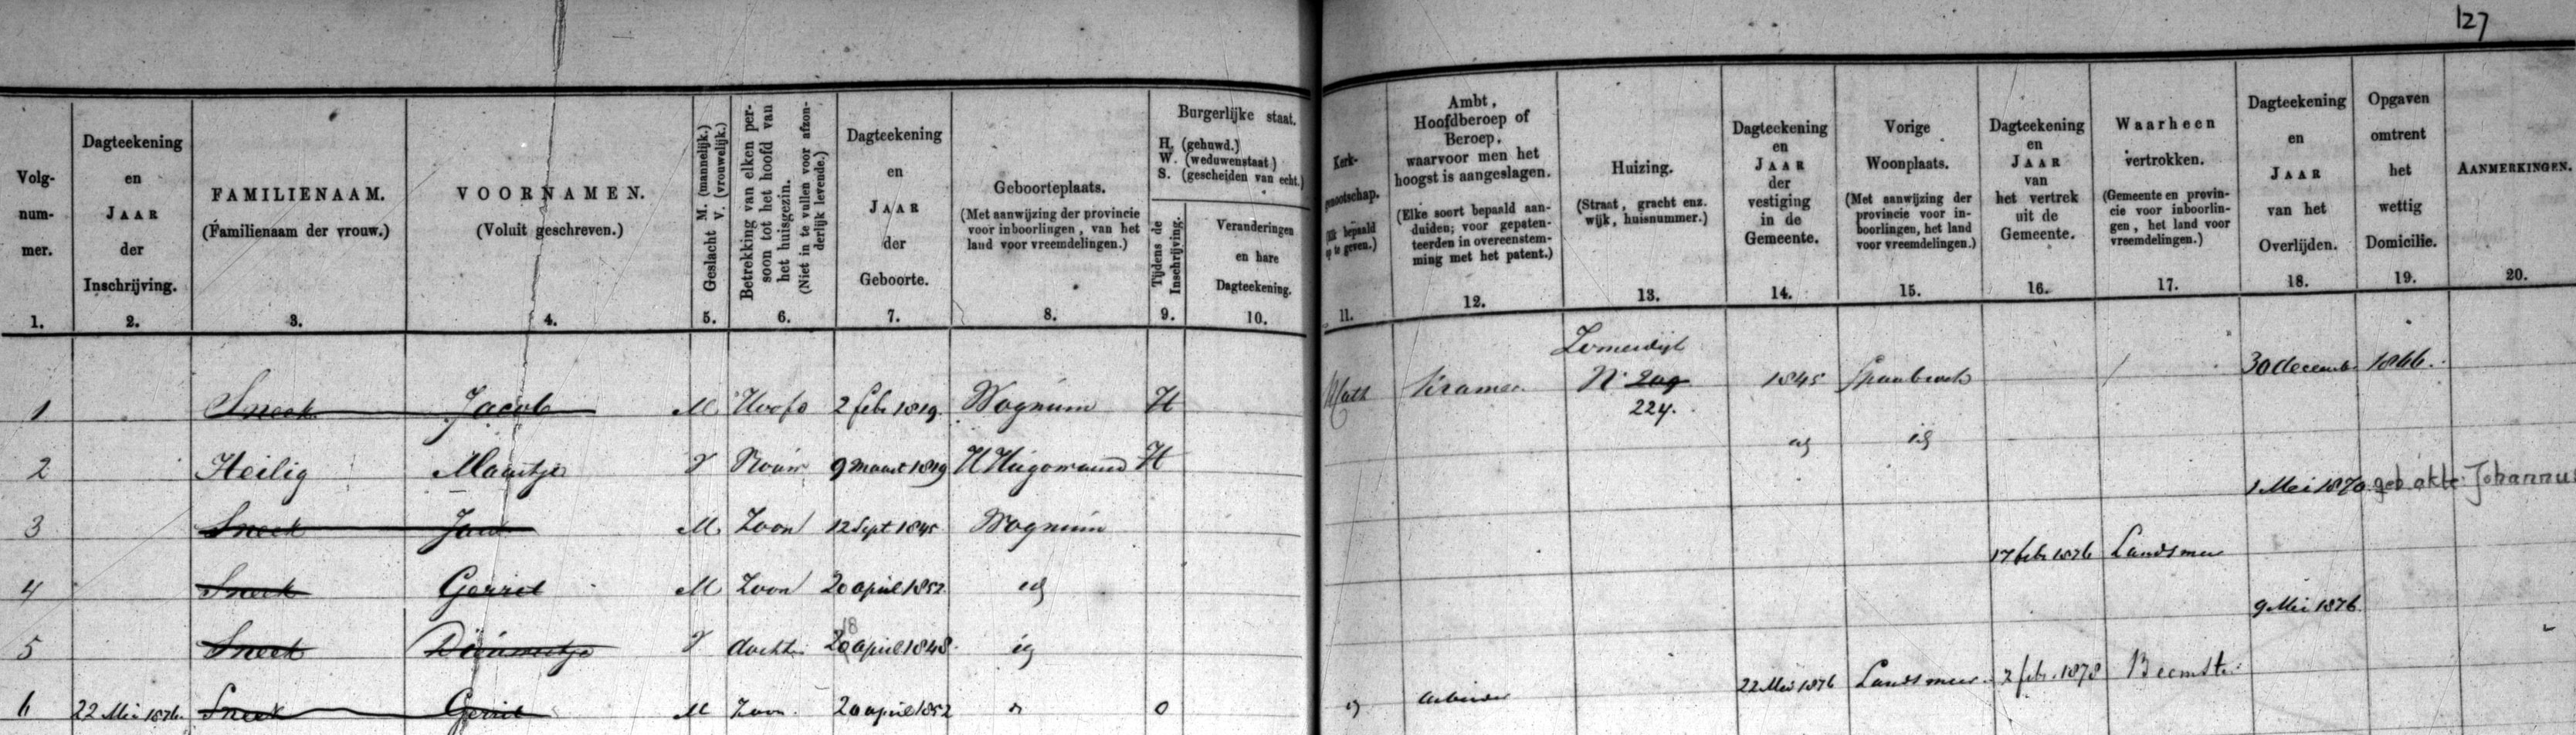 127
Volg-
num-
mer.
1.
Dagteekening
en
JAAR
der
Inschrijving.
2.
FAMILIENAAM.
(Familienaam der vrouw.)
3.
VOORNAMEN.
(Voluit geschreven.)
4.
Geslacht M. (mannelijk.)
V. (vrouwelijk.)
5.
Betrekking van elken per-
soon tot het hoofd van
het huisgezin.
(Niet in te vullen voor afzon-
derlijk levende.)
6.
Dagteekening
en
JAAR
der
Geboorte.
7.
Geboorteplaats.
(Met aanwijzing der provincie
voor inboorlingen, van het
land voor vreemdelingen.)
8.
Burgerlijke staat.
H. (gehuwd.)
W. (weduwenstaat.)
S. (gescheiden van echt.)
Tijdens de
Inschrijving.
9.
Veranderingen
en hare
Dagteekening.
10.
Kerk-
genootschap.
(Elk bepaald
op te geven.)
11.
Ambt,
Hoofdberoep of
Beroep,
waarvoor men het
hoogst is aangeslagen.
(Elke soort bepaald aan-
duiden; voor gepaten-
teerden in overeenstem-
ming met het patent.)
12.
Huizing.
(Straat, gracht enz.
wijk, huisnummer.)
13.
Dagteekening
en
JAAR
der
vestiging
in de
Gemeente.
14.
Vorige
Woonplaats.
(Met aanwijzing der
provincie voor in-
boorlingen, het land
voor vreemdelingen.)
15.
Dagteekening
en
JAAR
van
het vertrek
uit de
Gemeente.
16.
Waarheen
vertrokken.
(Gemeente en provin-
cie voor inboorlin-
gen, het land voor
vreemdelingen.)
17.
Dagteekening
en
JAAR
van het
Overlijden.
18.
Opgaven
omtrent
het
wettig
Domicilie.
19.
AANMERKINGEN.
20.
1 Sneek Jacob M Hoofd 2 feb 1819 Wognum H Kramer N 209 1845 Spanbroek 30 decemb 1866.
224.
2 Heilig Maartje V Vrouw 9 maart 1819 H Hugowaard H id
3 Sneek Jan M Zoon 12 Sept 1845 Wognum 1 Mei 1870 geb akte Johannus
4 Sneek Gerrit M Zoon 20 april 1852 id 17 feb 1876 Landsmeer
5 Sneek V dochter 20 april 1848. id 9 Mei 1876.
18
6 22 Mei 1876. Sneek Gerrit M Zoon. 20 april 1852 O Arbeider 22 Mei 1876 Landsmeer 7 feb. 1878 Beemster